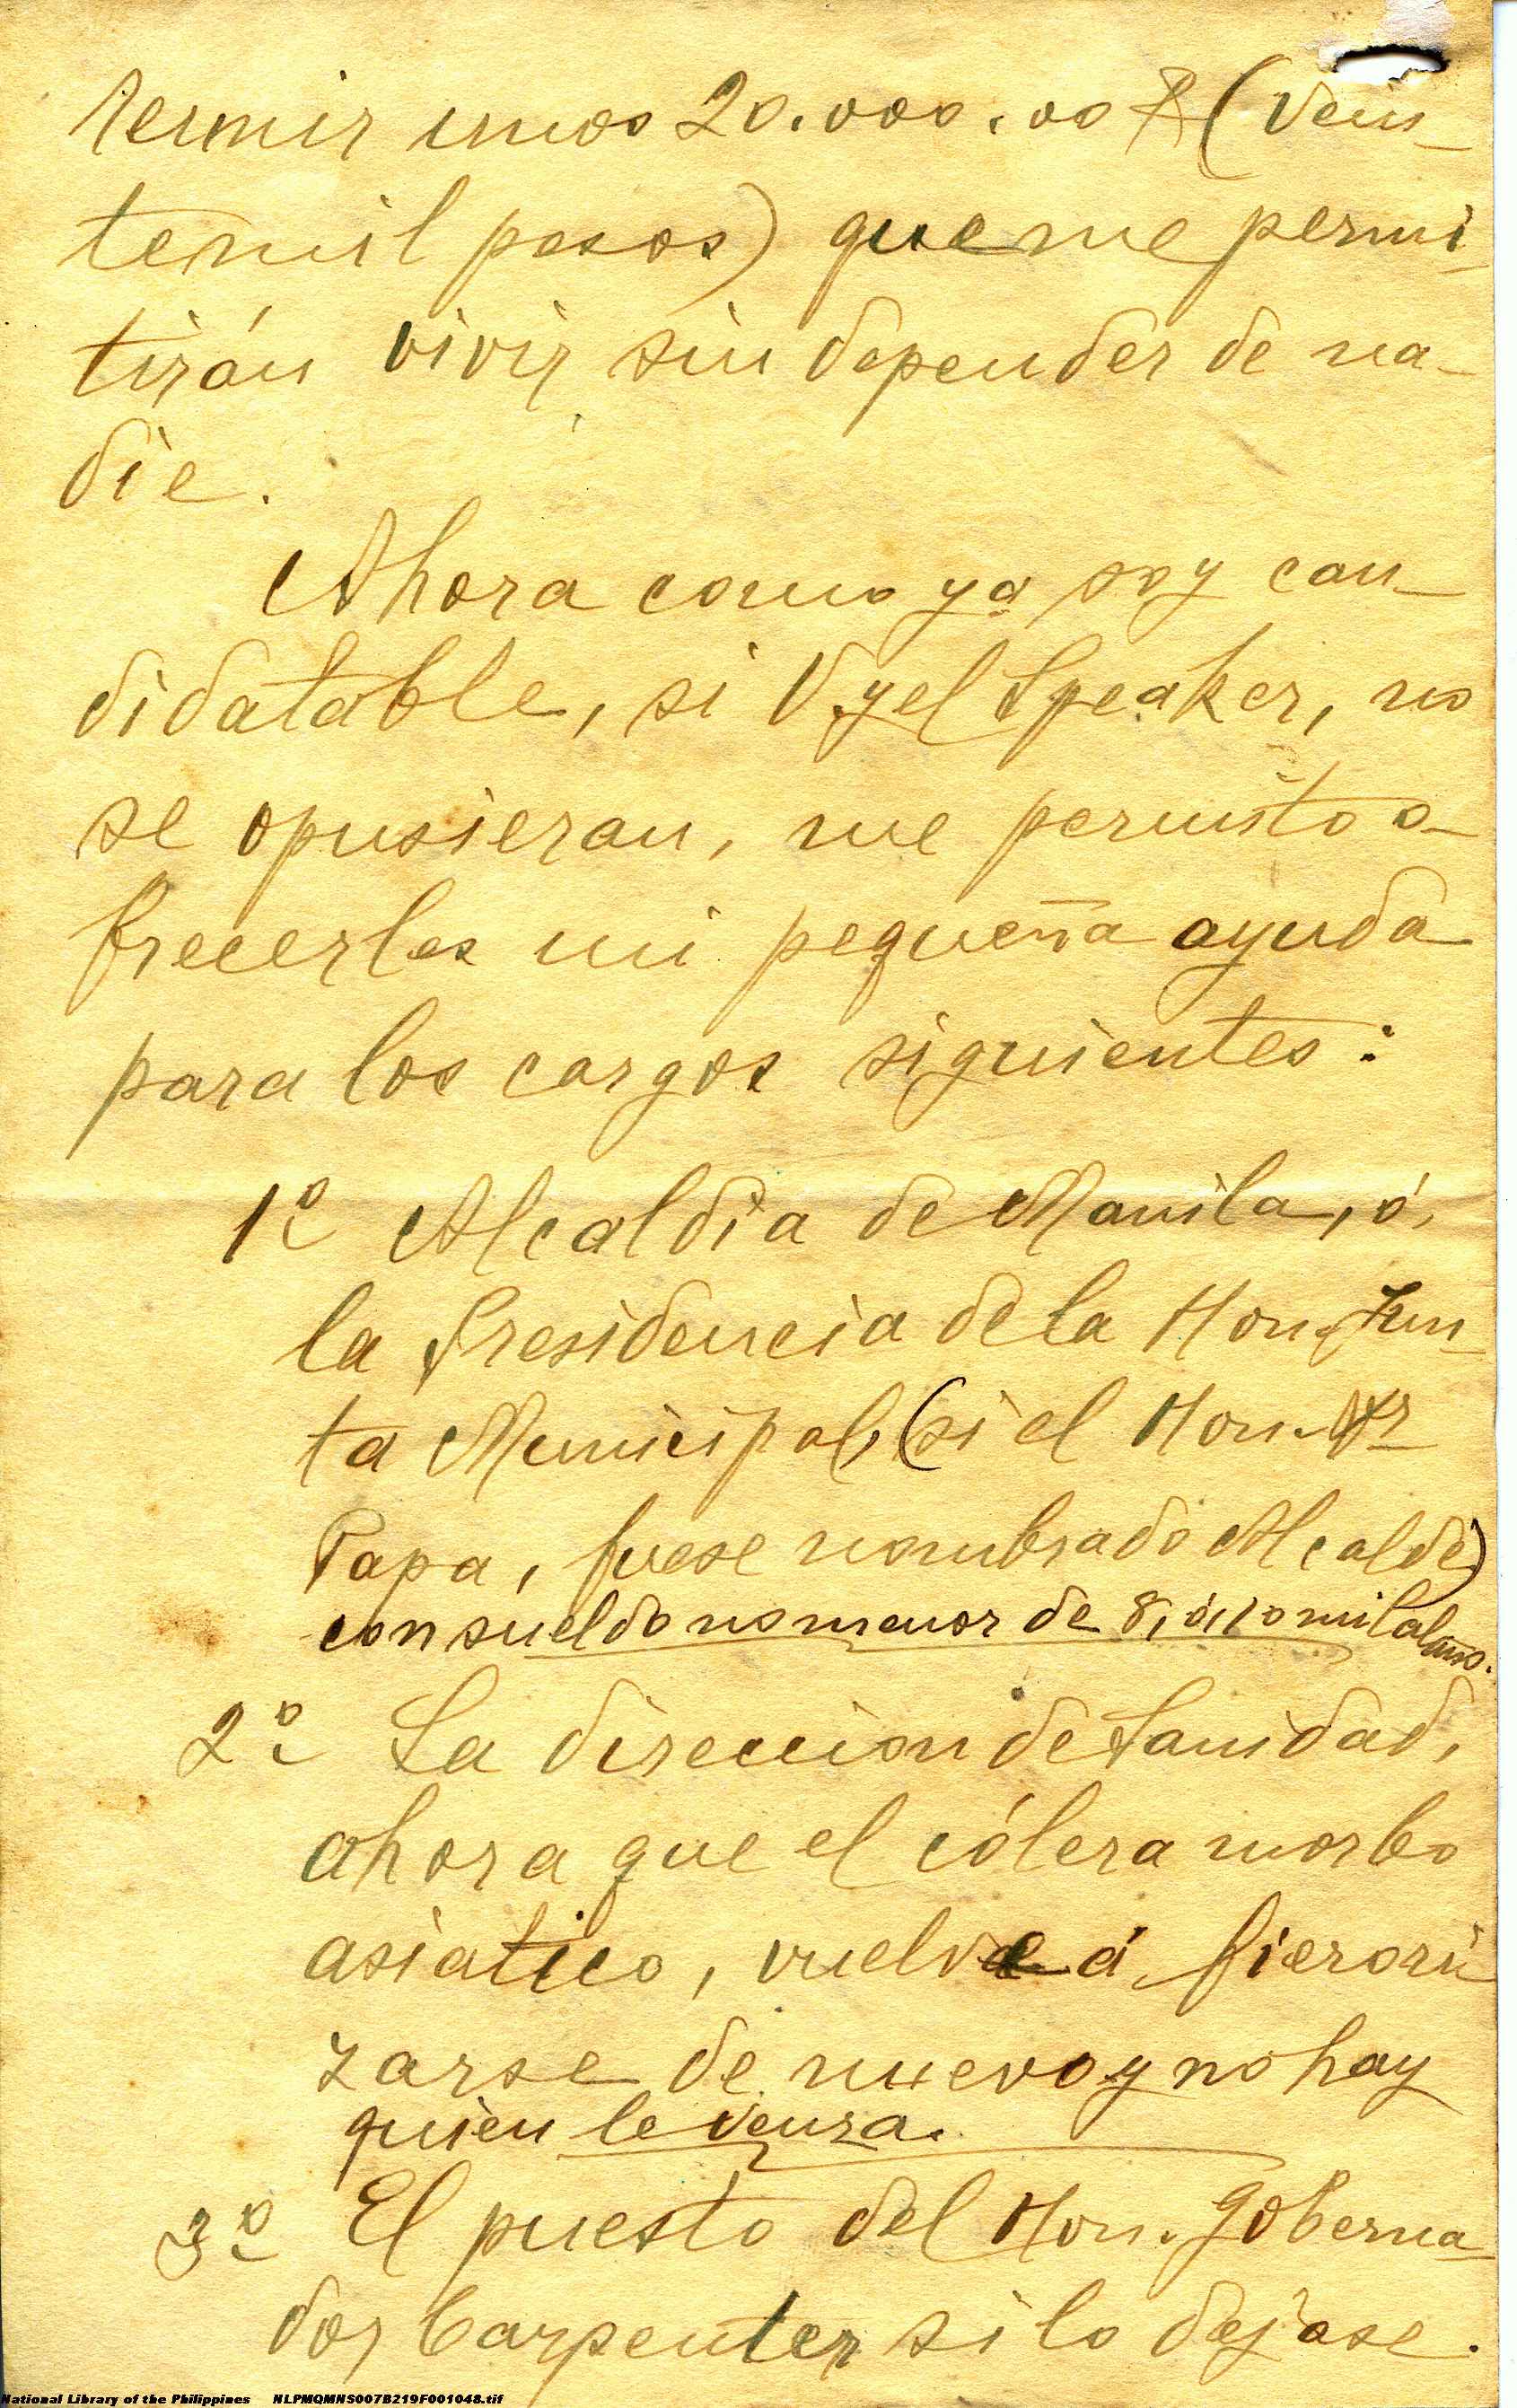 reunir unos 20.000.00 ₱ (Vein-
temil pesos) que me permi-
tirán vivir sin depender de na-
die.
Ahora como ya soy can-
didatable, si V. y el Speaker, no
se opusieran, me permito o-
frecerles mi pequeña ayuda
para los cargos siguientes:
1º Alcaldia de Manila, ó,
la Presidencia de la Hon. Jun-
ta Municipal, (si el Hon. Sr
Papa, fuese nombrado Alcalde)
con sueldo no menor de 8, ó, 10 mil al año.
2º La direccion de Sanidad,
ahora que el cólera morbo
asiatico, vuelve á fierori
zarse de nuevo y no hay
quien le venza.
3º El puesto del Hon. Goberna-
dor Carpenter si lo dejase.
National Library of the Philippines NLPMQMNS007B219F001048.tif